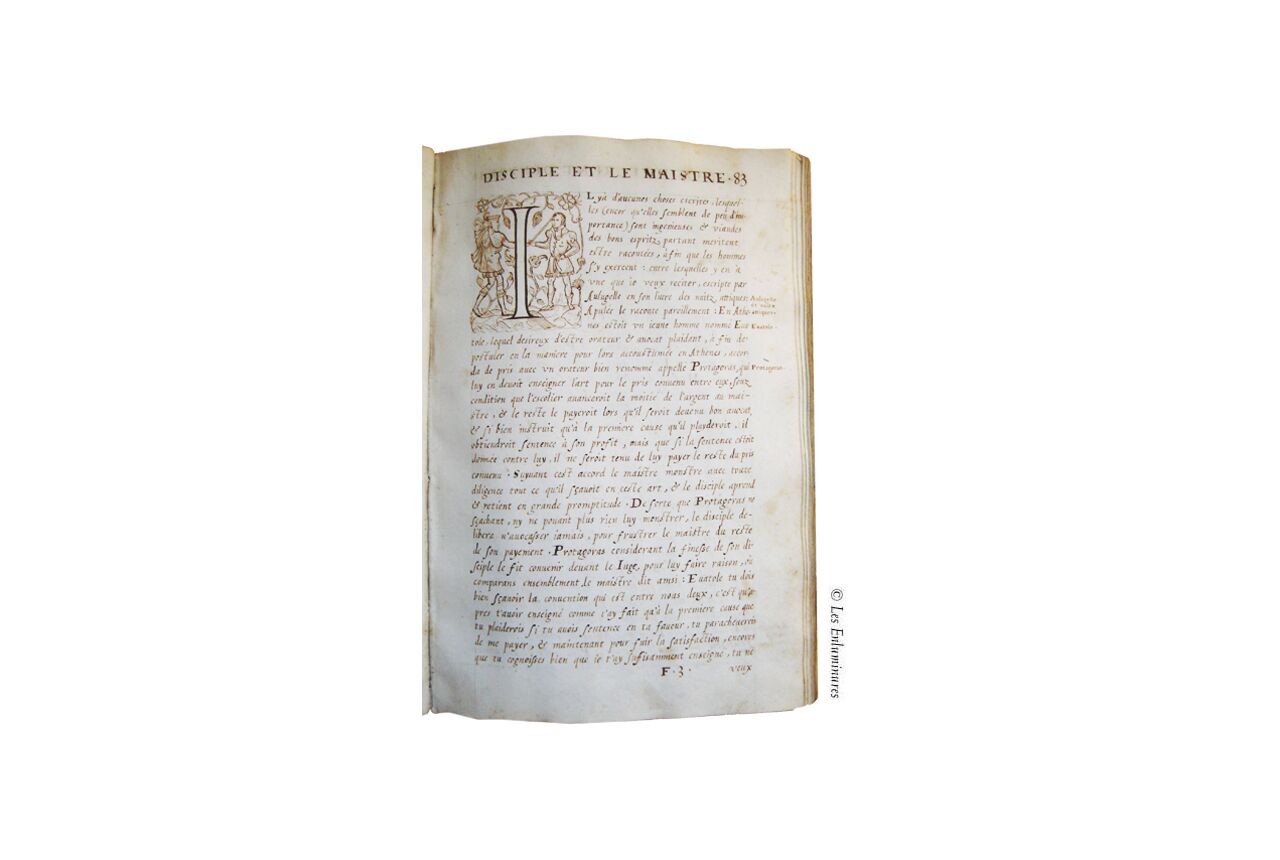 DISCIPLE ET LE MAISTRE · 83
I
Lyà d'aucunes choses escrites, lesquel-
les (encor qu'elles semblent de peu d'im-
portance) sont ingenieuses & viandes
des bons espritz, partant meritent
estre racontées, à fin que les hommes
s'y exercent : entre lesquelles y en à
vne que ie veux reciter, escripte par
Aulugelle en son liure des nuitz attiques:
Apulée le raconte pareillement : En Athe-
nes estoit vn ieune homme nommé Eua
tole, lequel desireux d'estre orateur & auocat plaidant, à fin de
postuler en la maniere pour lors accoustumée en Athenes, accor
da de pris auec vn orateur bien renommé appellé Protagoras, qui
luy en deuoit enseigner l'art pour le pris conuenu entre eux, souz
condition que l'escolier auanceroit la moitié de l'argent au mai-
stre, & le reste le payeroit lors qu'il seroit deuenu bon auocat,
& si bien instruit qu'à la premiere cause qu'il playderoit, il
obtiendroit sentence à son profit, mais que si la sentence estoit
donnée contre luy, il ne seroit tenu de luy payer le reste du pris
conuenu · Suyuant cest accord le maistre monstre auec toute
diligence tout ce qu'il sçauoit en ceste art, & le disciple aprend
& retient en grande promptitude · De sorte que Protagoras ne
sçachant, ny ne pouant plus rien luy monstrer, le disciple de-
libere n'auocasser iamais, pour frustrer le maistre du reste
de son payement · Protagoras considerant la finesse de son di-
sciple le fit conuenir deuant le Iuge, pour luy faire raison, où
comparans ensemblement, le maistre dit ainsi : Euatole tu dois
bien sçauoir la conuention qui est entre nous deux, c'est qu'a
pres t'auoir enseigné comme t'ay fait qu'à la premiere cause que
tu plaiderois si tu auois sentence en ta faueur, tu paracheuerois
de me payer, & maintenant pour fuir la satisfaction, encores
que tu cognoisses bien que ie t'ay sufisamment enseigné, tu ne
F · 3 · veux
Aulugelle
attiques
Euatole
Protagoras
© Les Enluminures